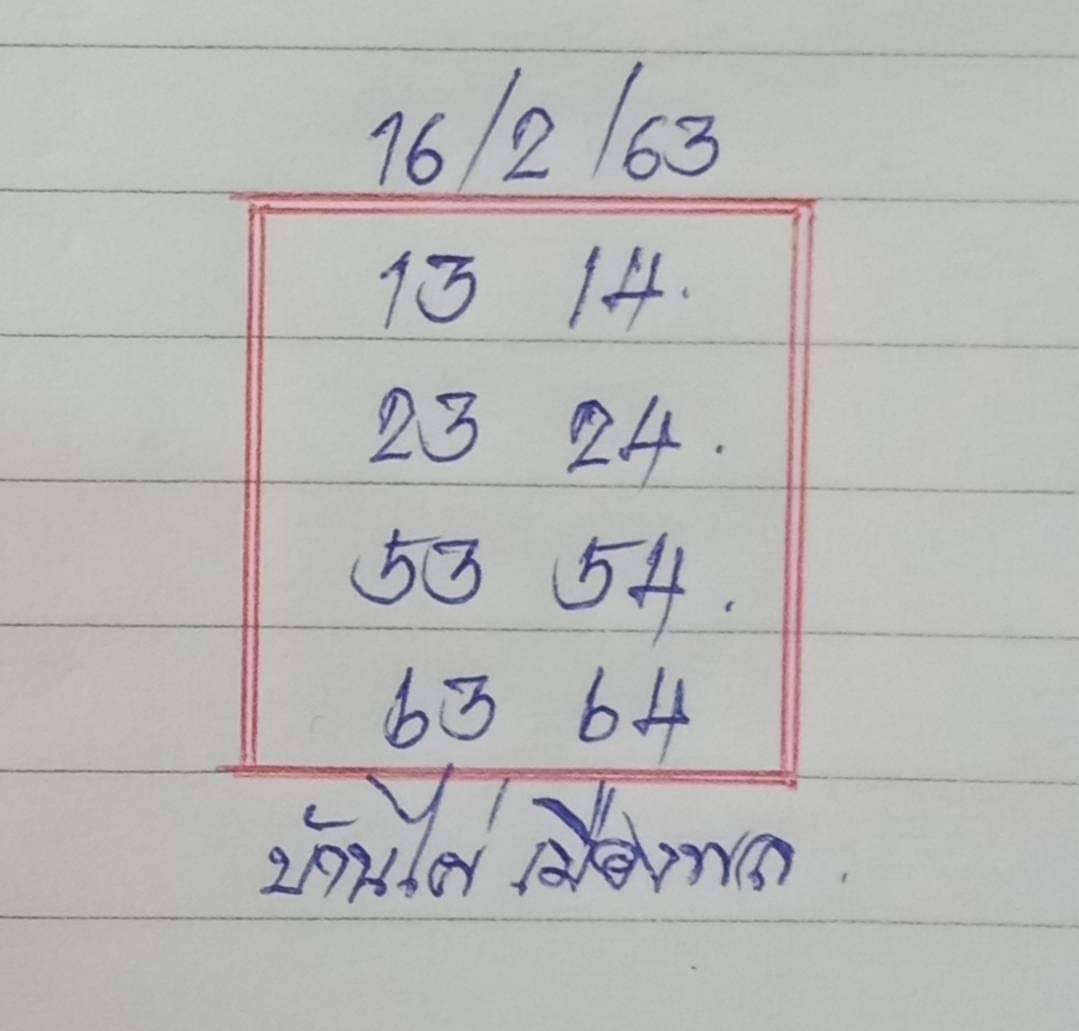 16/2/63
13 14.
23 24.
53 54.
63 64
บ้านไผ่ เมืองพล.